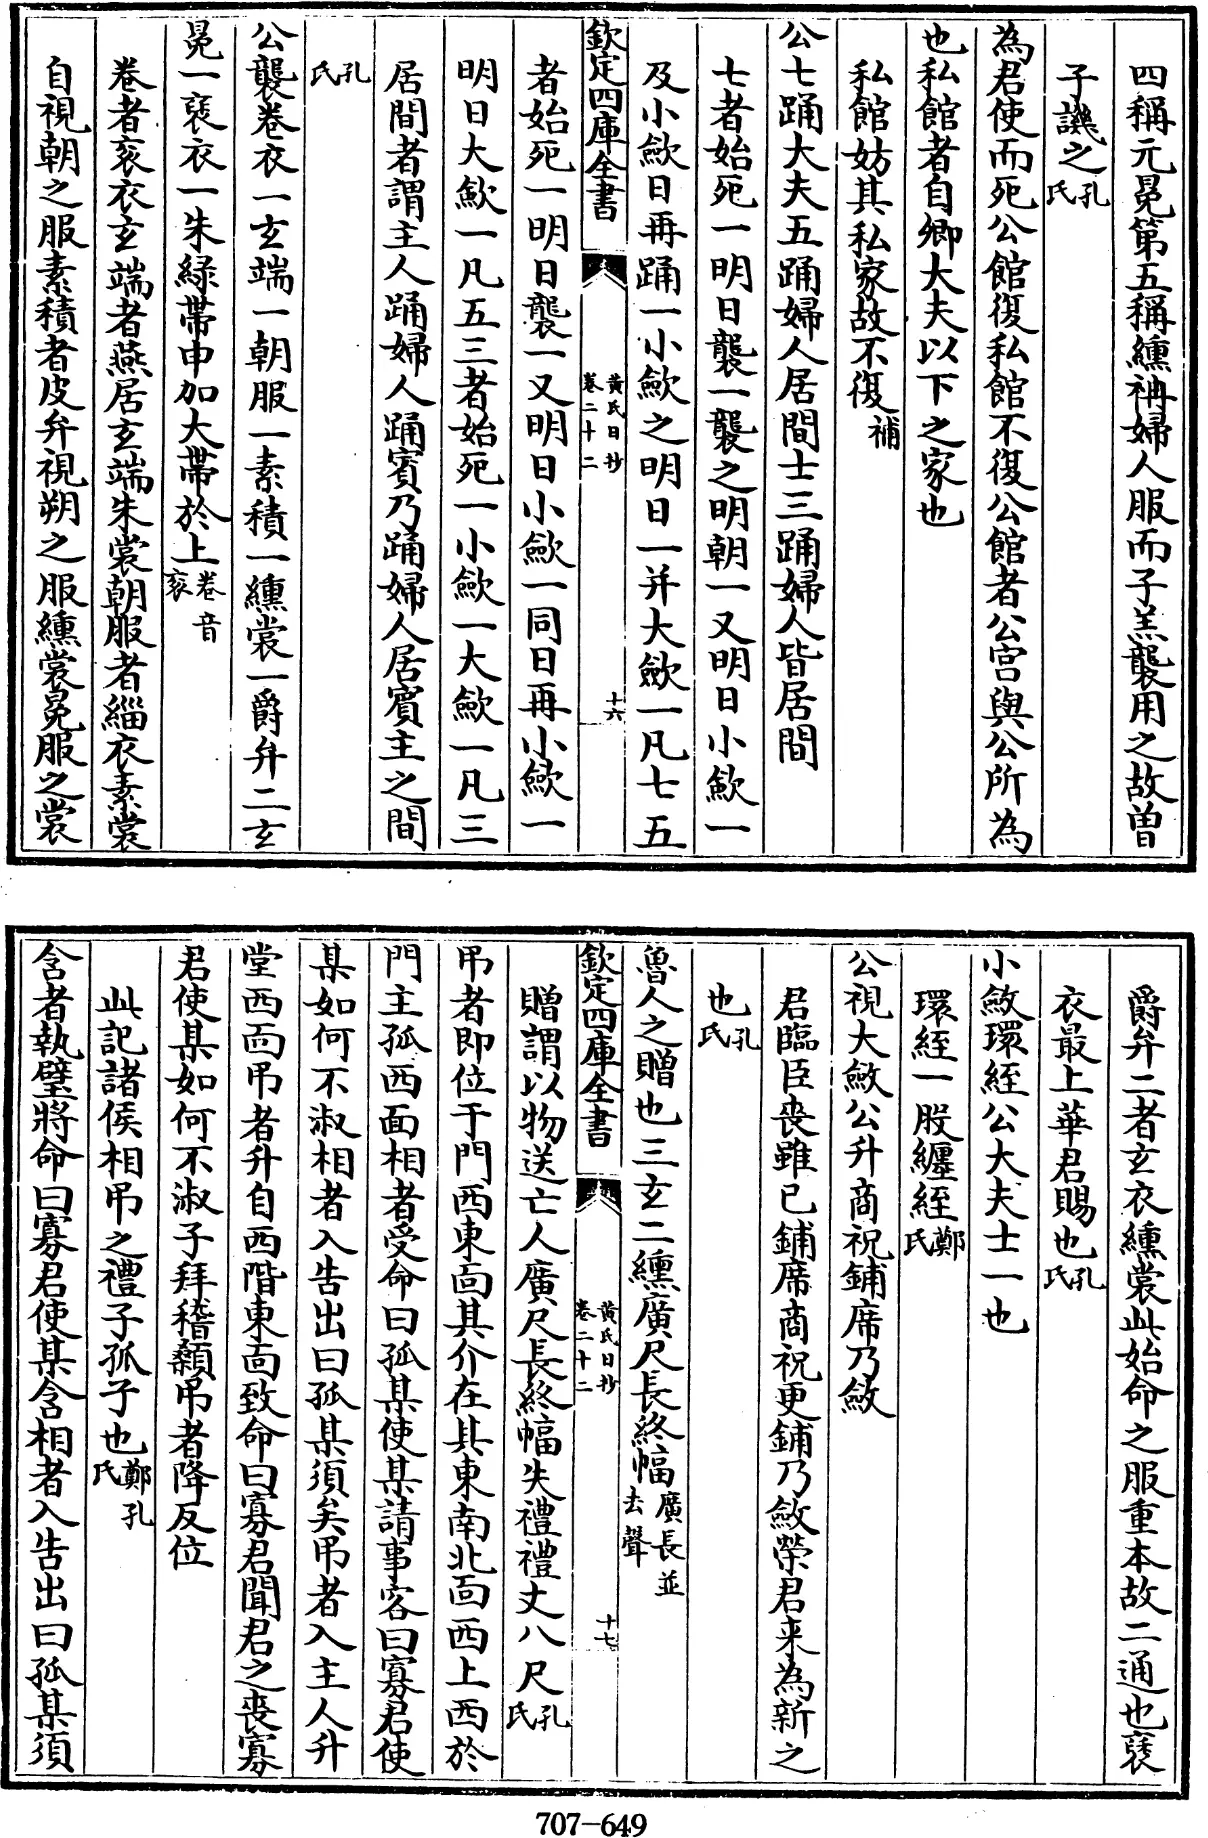 四稱元冕第五稱纁袡婦人服而子羔襲用之故曽
子譏之孔氏
為君使而死公館復私館不復公館者公宫與公所為
也私館者自卿大夫以下之家也
私館妨其私家故不復補
公七踊大夫五踊婦人居間士三踊婦人皆居間
七者始死一明日襲一襲之明朝一又明日小歛一
及小歛日再踊一小歛之明日一并大歛一凡七五
欽定四庫全書
黄氏日抄
卷二十二
十六
者始死一明日襲一又明日小歛一同日再小歛一
明日大歛一凡五三者始死一小歛一大歛一凡三
居間者謂主人踊婦人踊賔乃踊婦人居賔主之間
孔氏
公襲卷衣一玄端一朝服一素積一纁裳一爵弁二玄
冕一襃衣一朱緑帶申加大帶於上卷音衮
卷者衮衣玄端者燕居玄端朱裳朝服者緇衣素裳
自視朝之服素積者皮弁視朔之服纁裳冕服之裳
爵弁二者玄衣纁裳此始命之服重本故二通也襃
衣最上華君賜也孔氏
小斂環絰公大夫士一也
環絰一股纏絰鄭氏
公視大斂公升商祝鋪席乃斂
君臨臣喪雖已鋪席商祝更鋪乃斂榮君来為新之
也孔氏
魯人之贈也三玄二纁廣尺長終幅廣長並去聲
欽定四庫全書
黄氏日抄
卷二十二
十七
贈謂以物送亡人廣尺長終幅失禮禮丈八尺孔氏
弔者即位于門西東面其介在其東南北面西上西於
門主孤西面相者受命曰孤某使某請事客曰寡君使
某如何不淑相者入告出曰孤某須矣弔者入主人升
堂西面弔者升自西階東面致命曰寡君聞君之喪寡
君使某如何不淑子拜稽顙弔者降反位
此記諸侯相弔之禮子孤子也鄭孔氏
含者執璧將命曰寡君使某含相者入告出曰孤某須
707-649